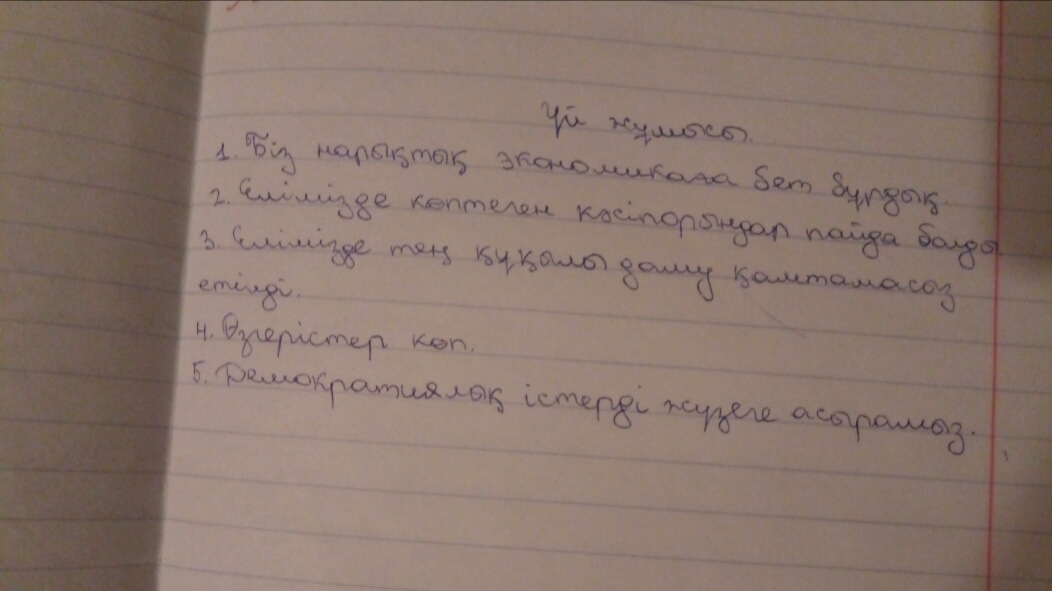 Үй жұмысы.
1. Біз нарықтық экономикаға бет бұрдық.
2. Елімізде көптеген кәсіпорындар пайда болды.
3. Елімізде тең құқылы даму қамтамасоз
етілді.
4. Өзгерістер көп.
5. Демократиялық істерді жүзеге асырамыз.